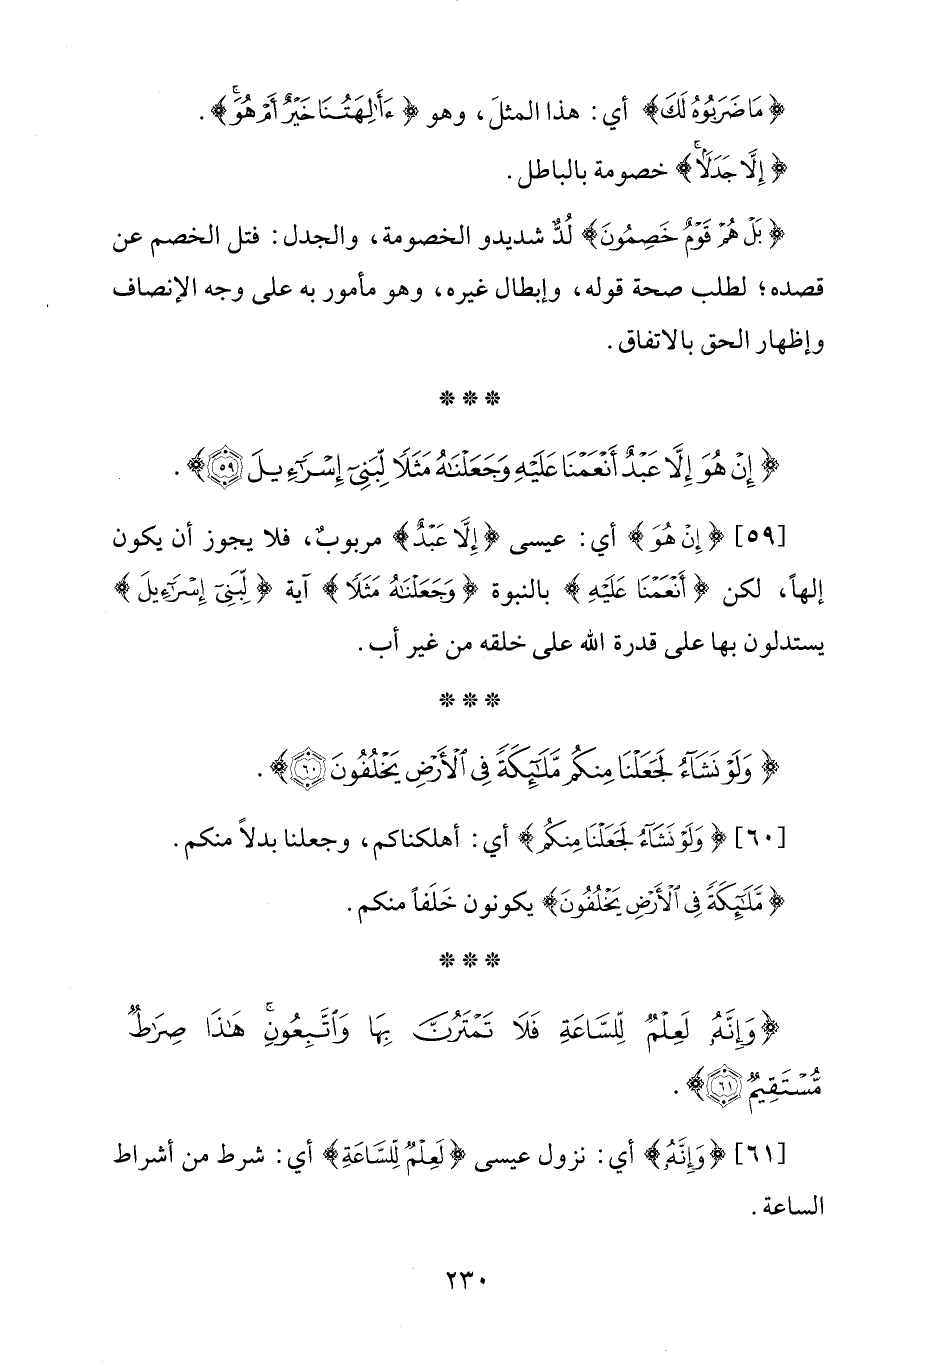 ﴿مَا ضَرَبُوهُ لَكَ﴾ أي: هذا المثلَ، وهو ﴿ءَأَٰلِهَتُنَا خَيْرٌ أَمْ هُوَۚ﴾.
﴿إِلَّا جَدَلَۢاۚ﴾ خصومة بالباطل.
﴿بَلْ هُمْ قَوْمٌ خَصِمُونَ﴾ لُدٌّ شديدو الخصومة، والجدل: فتل الخصم عن
قصده؛ لطلب صحة قوله، وإبطال غيره، وهو مأمور به على وجه الإنصاف
وإظهار الحق بالاتفاق.
* * *
﴿إِنْ هُوَ إِلَّا عَبْدٌ أَنْعَمْنَا عَلَيْهِ وَجَعَلْنَٰهُ مَثَلًا لِّبَنِىٓ إِسْرَٰٓءِيلَ ٥٩﴾.
[٥٩] ﴿إِنْ هُوَ﴾ أي: عيسى ﴿إِلَّا عَبْدٌ﴾ مربوبٌ، فلا يجوز أن يكون
إلهاً، لكن ﴿أَنْعَمْنَا عَلَيْهِ﴾ بالنبوة ﴿وَجَعَلْنَٰهُ مَثَلًا﴾ آية ﴿لِّبَنِىٓ إِسْرَٰٓءِيلَ﴾
يستدلون بها على قدرة الله على خلقه من غير أب.
* * *
﴿وَلَوْ نَشَآءُ لَجَعَلْنَا مِنكُم مَّلَٰٓئِكَةً فِى ٱلْأَرْضِ يَخْلُفُونَ ٦٠﴾.
[٦٠] ﴿وَلَوْ نَشَآءُ لَجَعَلْنَا مِنكُم﴾ أي: أهلكناكم، وجعلنا بدلاً منكم.
﴿مَّلَٰٓئِكَةً فِى ٱلْأَرْضِ يَخْلُفُونَ﴾ يكونون خَلَفاً منكم.
* * *
﴿وَإِنَّهُۥ لَعِلْمٌ لِّلسَّاعَةِ فَلَا تَمْتَرُنَّ بِهَا وَٱتَّبِعُونِۚ هَٰذَا صِرَٰطٌ
مُّسْتَقِيمٌ ٦١﴾.
[٦١] ﴿وَإِنَّهُۥ﴾ أي: نزول عيسى ﴿لَعِلْمٌ لِّلسَّاعَةِ﴾ أي: شرط من أشراط
الساعة.
٢٣٠